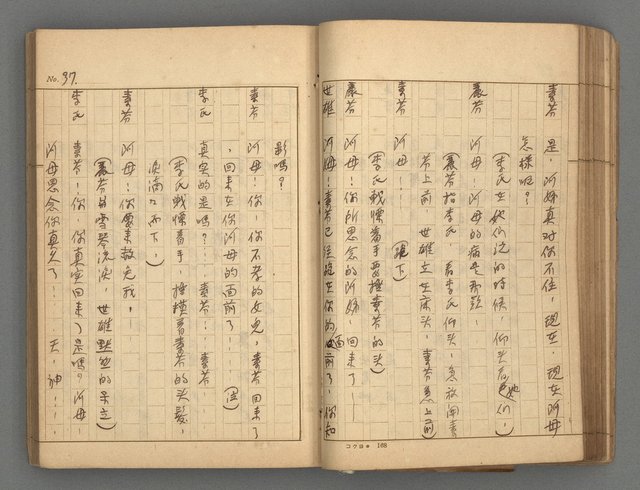 素芬 是，阿姊真对你不住，現在，現在阿母
怎樣呢？
（李氏在他们説的時候，仰头看她们，）
麗芬 阿母！阿母的病是那題，
（麗芬指李氏，看李氏仰头，急放開素
芬上前，世雄立在床头，素芬急上前）
素芬 阿母……（跪下）
（李氏戦慄着手要摸素芬的头）
麗芬 阿母！你所思念的阿姊，回來了——
世雄 阿姆！素芬已经跪在你的面前了，你知
No. 37.
影嗎？
素芬 阿母！你，你不孝的女兒，素芬回來了
，回来在你阿母的面前了……（泣）
李氏 真实的是嗎？……素芬！……素芬
（李氏戦慄着手，撫摸着素芬的头髮，
淚滴々而下，）
素芬 阿母！你要来赦免我，
（麗芬与雪琴流淚，世雄默然的呆立）
李氏 素芬！你，你真实回来了是嗎？阿母，
阿母思念你真久了！……天，神……
コクヨ 168